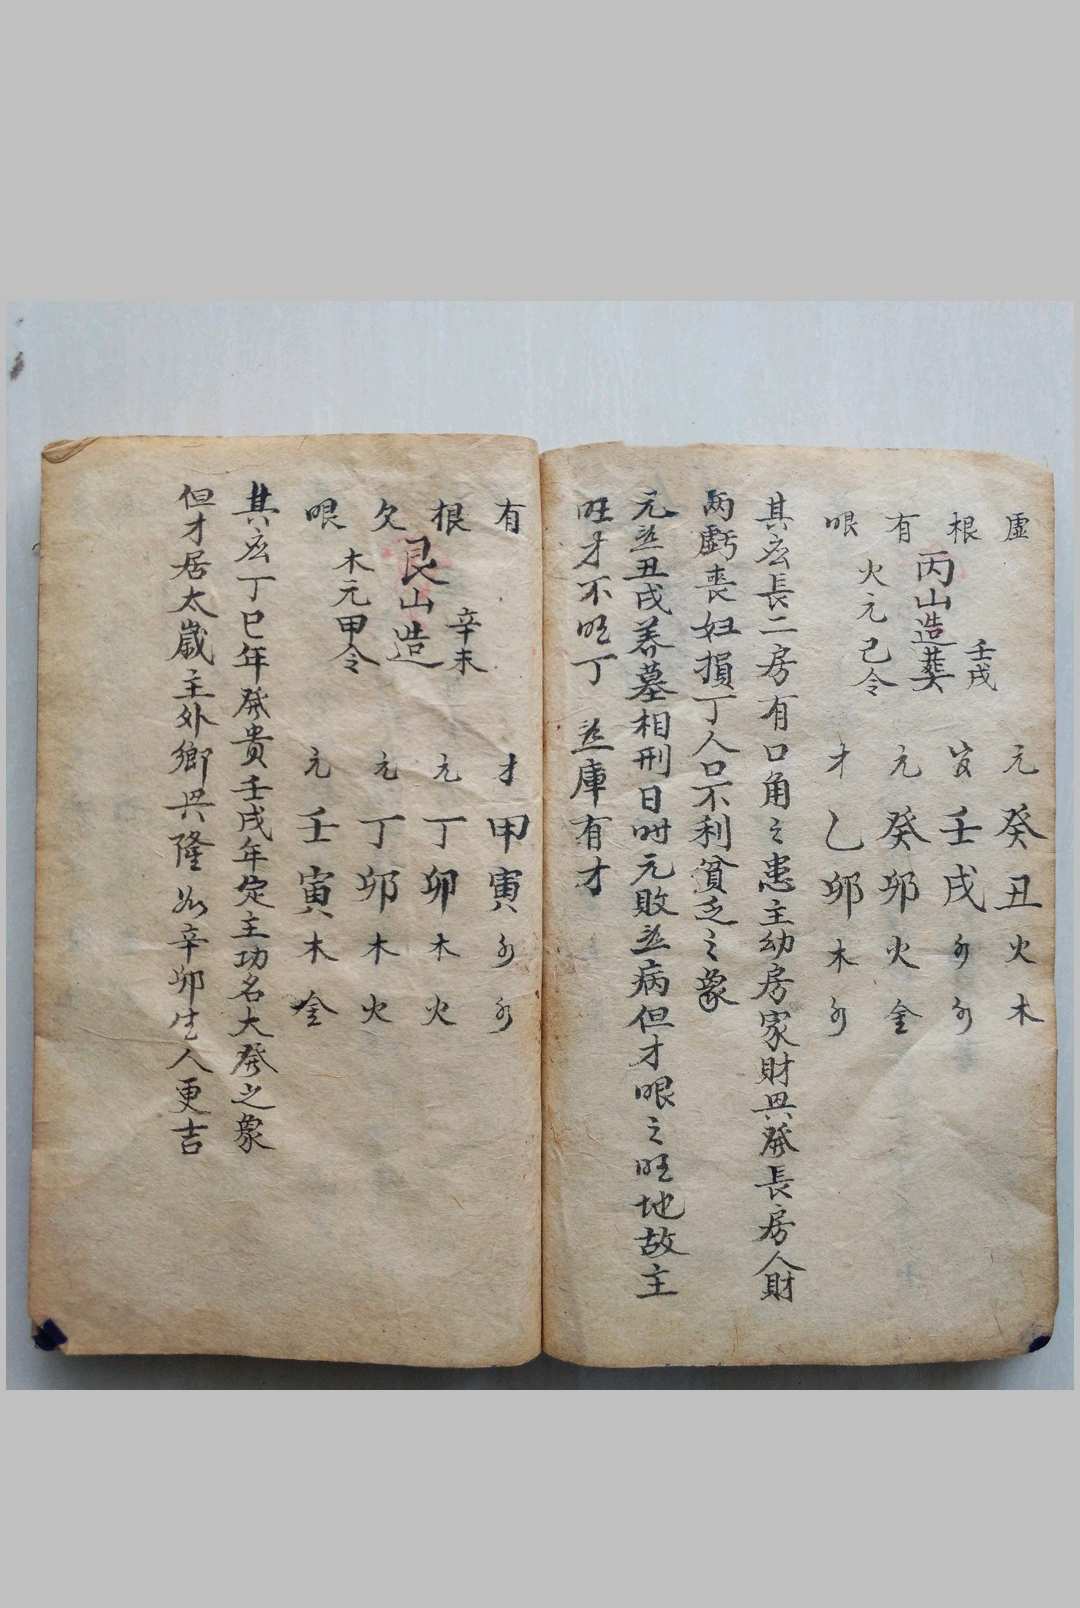 虛 元癸丑火木
壬戌
根 壬戌水水
丙山造葬
有 元癸卯火金
火元己令
眼 才乙卯木水
其玄長二房有口角之患主幼房家財興發長房人財
兩虧喪妇損丁人口不利貧乏之象
元並丑戌养墓相刑日时元敗並病但才眼之旺地故主
旺才不旺丁 並庫有才
有 才甲寅水水
辛未
根 元丁卯木火
艮山造
欠 元丁卯木火
木元甲令
眼 元壬寅木金
其玄丁巳年發貴壬戌年定主功名大發之象
但才居太歲主外鄉興隆如辛卯生人更吉